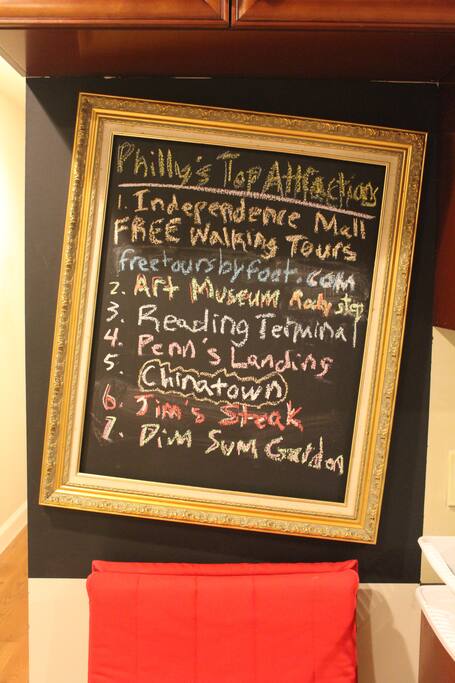 Philly's Top Attractions
1. Independence Mall
FREE Walking Tours
freetoursbyfoot.com
2. Art Museum Rocky step
3. Reading Terminal
4. Penn's Landing
5. Chinatown
6. Jim's Steak
7. Dim Sum Garden